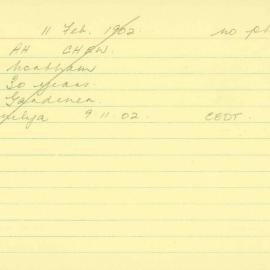 11 Feb. 1902 no ph
AH CHEW.
Northam
30 years.
Gardener
9.11.02. CEDT.